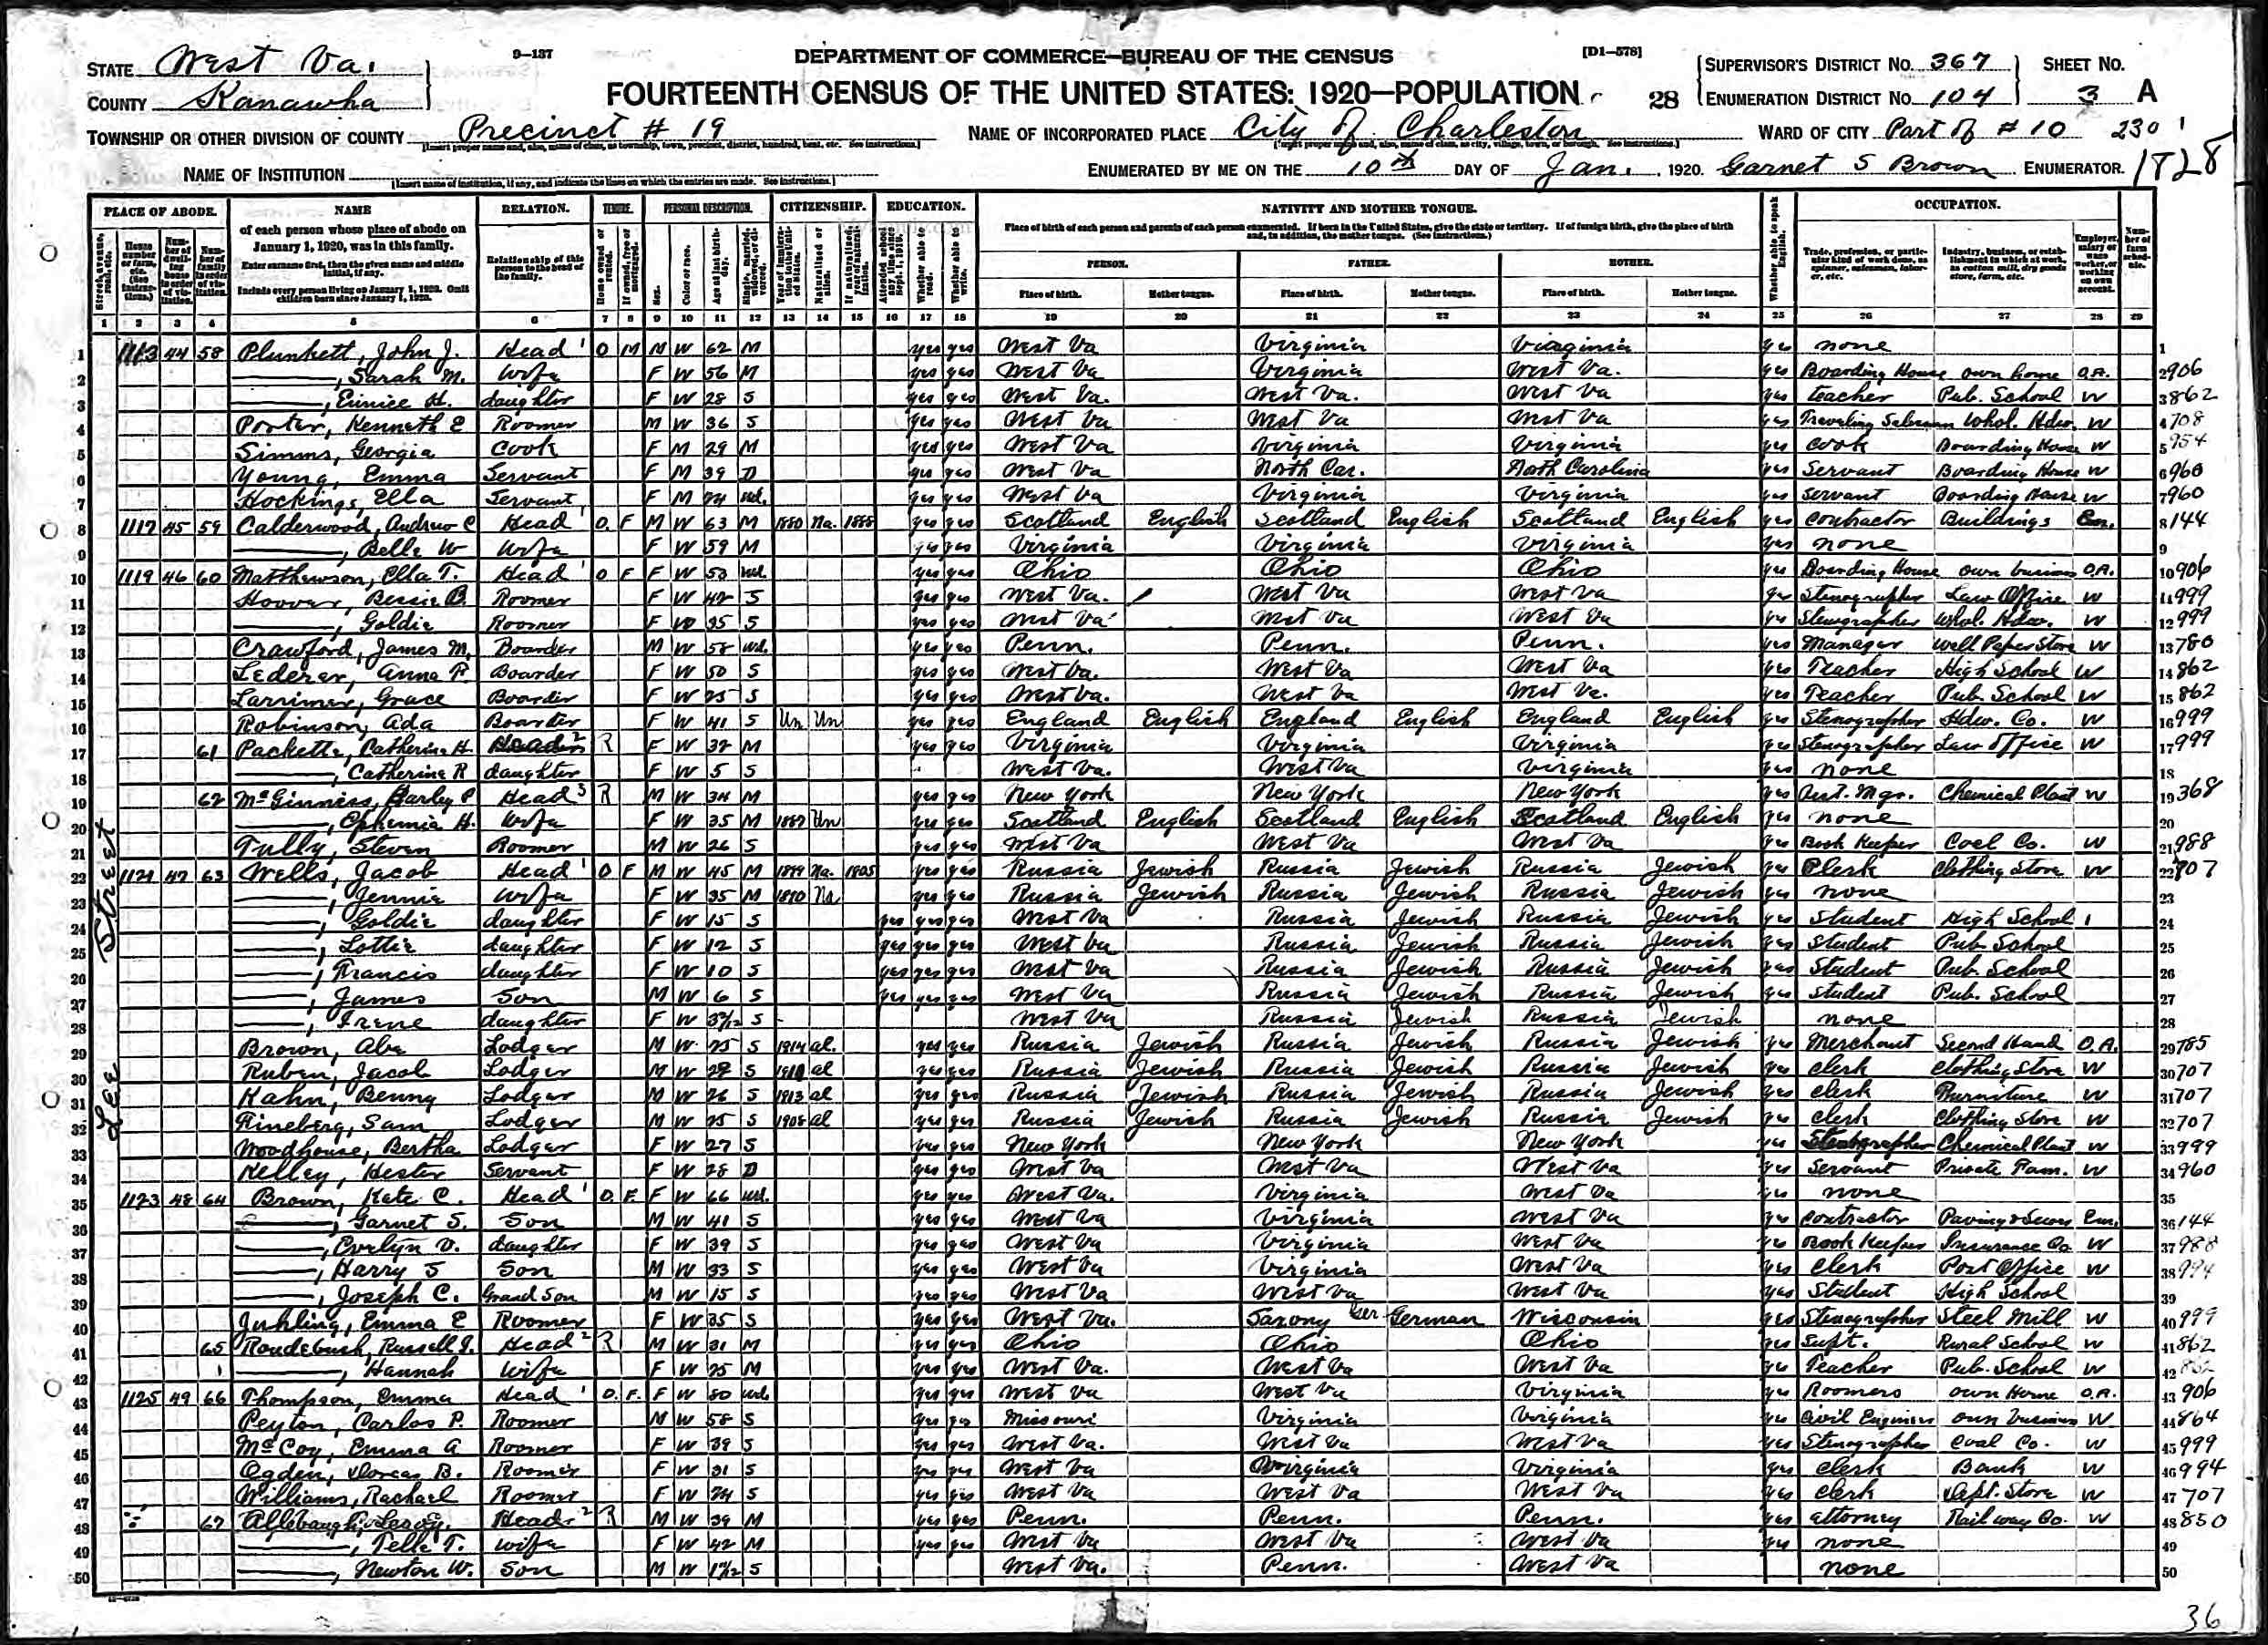 9—137
DEPARTMENT OF COMMERCE—BUREAU OF THE CENSUS
[D1—578]
STATE West Va.
COUNTY Kanawha
FOURTEENTH CENSUS OF THE UNITED STATES: 1920—POPULATION
28
SUPERVISOR'S DISTRICT No. 367
ENUMERATION DISTRICT No. 104
SHEET No.
3 A
TOWNSHIP OR OTHER DIVISION OF COUNTY Precinct # 19
NAME OF INCORPORATED PLACE City of Charleston
WARD OF CITY Part of # 10 230
1828
NAME OF INSTITUTION
ENUMERATED BY ME ON THE 10th DAY OF Jan., 1920. Garnet S Brown ENUMERATOR.
PLACE OF ABODE. NAME RELATION. TENURE. PERSONAL DESCRIPTION. CITIZENSHIP. EDUCATION. NATIVITY AND MOTHER TONGUE. OCCUPATION.
of each person whose place of abode on January 1, 1920, was in this family.
Enter surname first, then the given name and middle initial, if any.
Include every person living on January 1, 1920. Omit children born since January 1, 1920.
Relationship of this person to the head of the family.
Place of birth of each person and parents of each person enumerated. If born in the United States, give the state or territory. If of foreign birth, give the place of birth and, in addition, the mother tongue. (See Instructions.)
PERSON. FATHER. MOTHER.
Place of birth. Mother tongue. Place of birth. Mother tongue. Place of birth. Mother tongue.
1 2 3 4 5 6 7 8 9 10 11 12 13 14 15 16 17 18 19 20 21 22 23 24 25 26 27 28 29
Lee Street
1 1113 44 58 Plunkett, John J. Head 1 O M M W 62 M yes yes West Va Virginia Virginia yes none 1
2 ——, Sarah M. Wife F W 56 M yes yes West Va Virginia West Va. yes Boarding House own home O.A. 2 906
3 ——, Eunice H. daughter F W 28 S yes yes West Va. West Va. West Va yes teacher Pub. School W 3 862
4 Porter, Kenneth E Roomer M W 36 S yes yes West Va West Va West Va yes Traveling Salesman Whol. Hdw. W 4 708
5 Simms, Georgia Cook F M 29 M yes yes West Va Virginia Virginia yes cook Boarding House W 5 954
6 Young, Emma Servant F M 39 D yes yes West Va North Car. North Carolina yes Servant Boarding House W 6 960
7 Hockings, Ella Servant F M 74 wd. yes yes West Va Virginia Virginia yes Servant Boarding House W 7 960
8 1117 45 59 Calderwood, Andrew C Head 1 O. F M W 63 M 1880 Na. 1888 yes yes Scotland English Scotland English Scotland English yes contractor Buildings Em. 8 144
9 ——, Belle W Wife F W 59 M yes yes Virginia Virginia Virginia yes none 9
10 1119 46 60 Matthewson, Ella T. Head 1 O F F W 53 wd. yes yes Ohio Ohio Ohio yes Boarding House own business O.A. 10 906
11 Hoover, Bessie B. Roomer F W 42 S yes yes West Va. West Va West Va yes Stenographer Law Office W 11 999
12 ——, Goldie Roomer F W 35 S yes yes West Va West Va West Va yes Stenographer Whol. Hdw. W 12 999
13 Crawford, James M. Boarder M W 58 wd. yes yes Penn. Penn. Penn. yes Manager Wall Paper Store W 13 780
14 Lederer, Anna P. Boarder F W 50 S yes yes West Va. West Va West Va yes Teacher High School W 14 862
15 Larrimer, Grace Boarder F W 25 S yes yes West Va. West Va West Va. yes Teacher Pub. School W 15 862
16 Robinson, Ada Boarder F W 41 S Un Un yes yes England English England English England English yes Stenographer Hdw. Co. W 16 999
17 61 Packette, Catherine H. Head 2 R F W 32 M yes yes Virginia Virginia Virginia yes Stenographer Law office W 17 999
18 ——, Catherine R daughter F W 5 S West Va. West Va Virginia yes none 18
19 62 McGinniss, Harley P Head 3 R M W 34 M yes yes New York New York New York yes Asst. Mgr. Chemical Plant W 19 368
20 ——, Ephemia H. Wife F W 35 M 1887 Un yes yes Scotland English Scotland English Scotland English yes none 20
21 Tully, Steven Roomer M W 26 S yes yes West Va West Va West Va yes Book Keeper Coal Co. W 21 988
22 1121 47 63 Wells, Jacob Head 1 O F M W 45 M 1899 Na. 1905 yes yes Russia Jewish Russia Jewish Russia Jewish yes Clerk Clothing Store W 22 707
23 ——, Jennie Wife F W 35 M 1890 Na yes yes Russia Jewish Russia Jewish Russia Jewish yes none 23
24 ——, Goldie daughter F W 15 S yes yes yes West Va Russia Jewish Russia Jewish yes Student High School 24
25 ——, Lottie daughter F W 12 S yes yes yes West Va Russia Jewish Russia Jewish yes Student Pub. School 25
26 ——, Francis daughter F W 10 S yes yes yes West Va Russia Jewish Russia Jewish yes Student Pub. School 26
27 ——, James Son M W 6 S yes yes yes West Va Russia Jewish Russia Jewish yes Student Pub. School 27
28 ——, Irene daughter F W S West Va Russia Jewish Russia Jewish none 28
29 Brown, Abe Lodger M W 25 S 1914 al. yes yes Russia Jewish Russia Jewish Russia Jewish yes Merchant Second Hand O.A. 29 785
30 Ruben, Jacob Lodger M W 28 S 1910 al yes yes Russia Jewish Russia Jewish Russia Jewish yes clerk Clothing Store W 30 707
31 Kahn, Benny Lodger M W 26 S 1913 al yes yes Russia Jewish Russia Jewish Russia Jewish yes clerk Furniture W 31 707
32 Fineberg, Sam Lodger M W 25 S 1908 al yes yes Russia Jewish Russia Jewish Russia Jewish yes clerk Clothing Store W 32 707
33 Woodhouse, Bertha Lodger F W 27 S yes yes New York New York New York yes Stenographer Chemical Plant W 33 999
34 Kelley, Hester Servant F W 28 D yes yes West Va West Va West Va yes Servant Private Fam. W 34 960
35 1123 48 64 Brown, Kate C. Head 1 O. F. F W 66 wd. yes yes West Va. Virginia West Va yes none 35
36 ——, Garnet S. Son M W 41 S yes yes West Va Virginia West Va yes contractor Paving & Sewer Em. 36 144
37 ——, Evelyn V. daughter F W 39 S yes yes West Va Virginia West Va yes Book Keeper Insurance Co W 37 988
38 ——, Harry S Son M W 33 S yes yes West Va Virginia West Va yes clerk Post Office W 38 994
39 ——, Joseph C. Grand Son M W 15 S yes yes West Va West Va West Va yes Student High School 39
40 Juhling, Emma E Roomer F W 35 S yes yes West Va. Saxony Ger German Wisconsin yes Stenographer Steel Mill W 40 999
41 65 Roudebush, Russell I. Head 2 R M W 31 M yes yes Ohio Ohio Ohio yes Supt. Rural School W 41 862
42 ——, Hannah Wife F W 25 M yes yes West Va. West Va West Va yes Teacher Pub. School W 42 862
43 1125 49 66 Thompson, Emma Head 1 O. F. F W 50 wd. yes yes West Va West Va Virginia yes Roomers own Home O.A. 43 906
44 Peyton, Carlos P. Roomer M W 58 S yes yes Missouri Virginia Virginia yes Civil Engineer own business W 44 864
45 McCoy, Emma A Roomer F W 39 S yes yes West Va. West Va West Va yes Stenographer Coal Co. W 45 999
46 Ogden, Dorcas B. Roomer F W 31 S yes yes West Va Virginia Virginia yes clerk Bank W 46 994
47 Williams, Rachael Roomer F W 24 S yes yes West Va West Va West Va yes clerk Dept. Store W 47 707
48 67 Allebaugh, Leroy Head 2 R M W 39 M yes yes Penn. Penn. Penn. yes attorney Rail way Co. W 48 850
49 ——, Telle T. wife F W 42 M yes yes West Va West Va West Va yes none 49
50 ——, Newton W. Son M W S West Va. Penn. West Va none 50
36